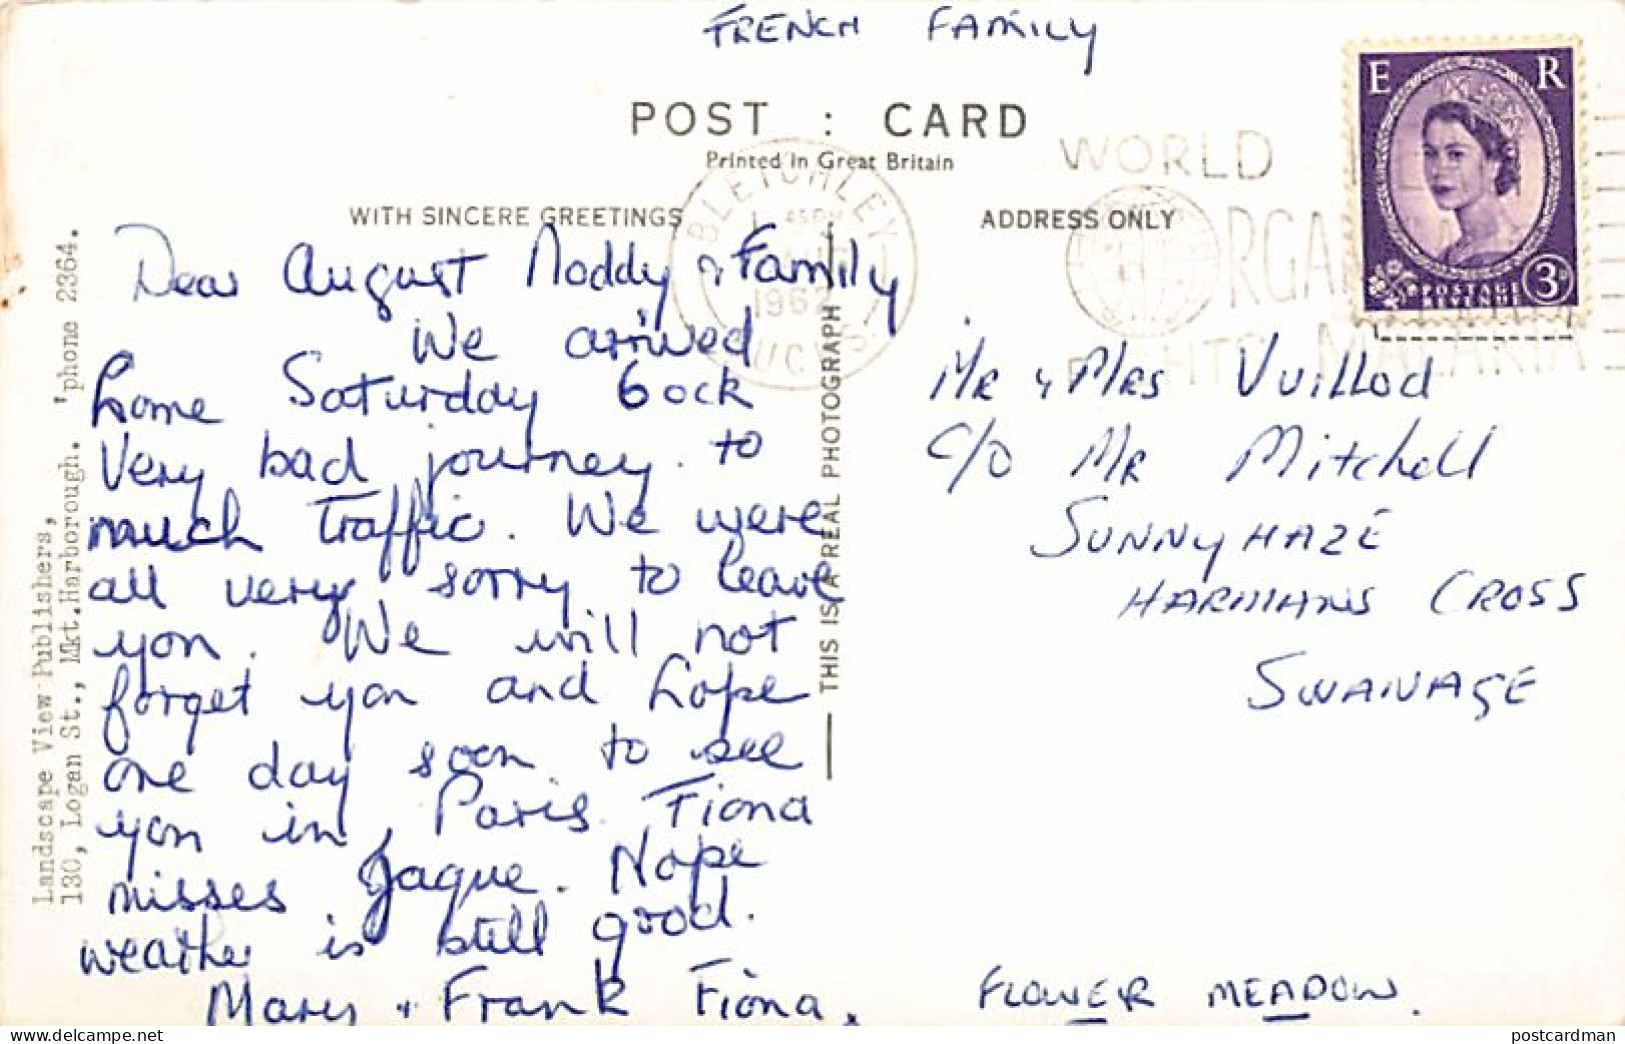 FRENCH FAMILY
POST : CARD
Printed in Great Britain
WITH SINCERE GREETINGS
ADDRESS ONLY
E R
POSTAGE
REVENUE
3D
BLETCHLEY
1962
BUCKS
WORLD
MALARIA
Dear August Noddy & Family
We arrived
home Saturday 6ock
Very bad journey. to
much traffic. We were
all very sorry to leave
you. We will not
forget you and hope
one day soon to see
you in Paris. Fiona
misses Jaque. Hope
weather is still good.
Mary + Frank Fiona.
MR & MRS Vuillod
C/O MR Mitchell
SUNNYHAZE
HARMANS CROSS
SWANAGE
FLOWER MEADOW.
THIS IS A REAL PHOTOGRAPH
Landscape View Publishers,
130, Logan St., Mkt.Harborough. 'phone 2364.
postcardman